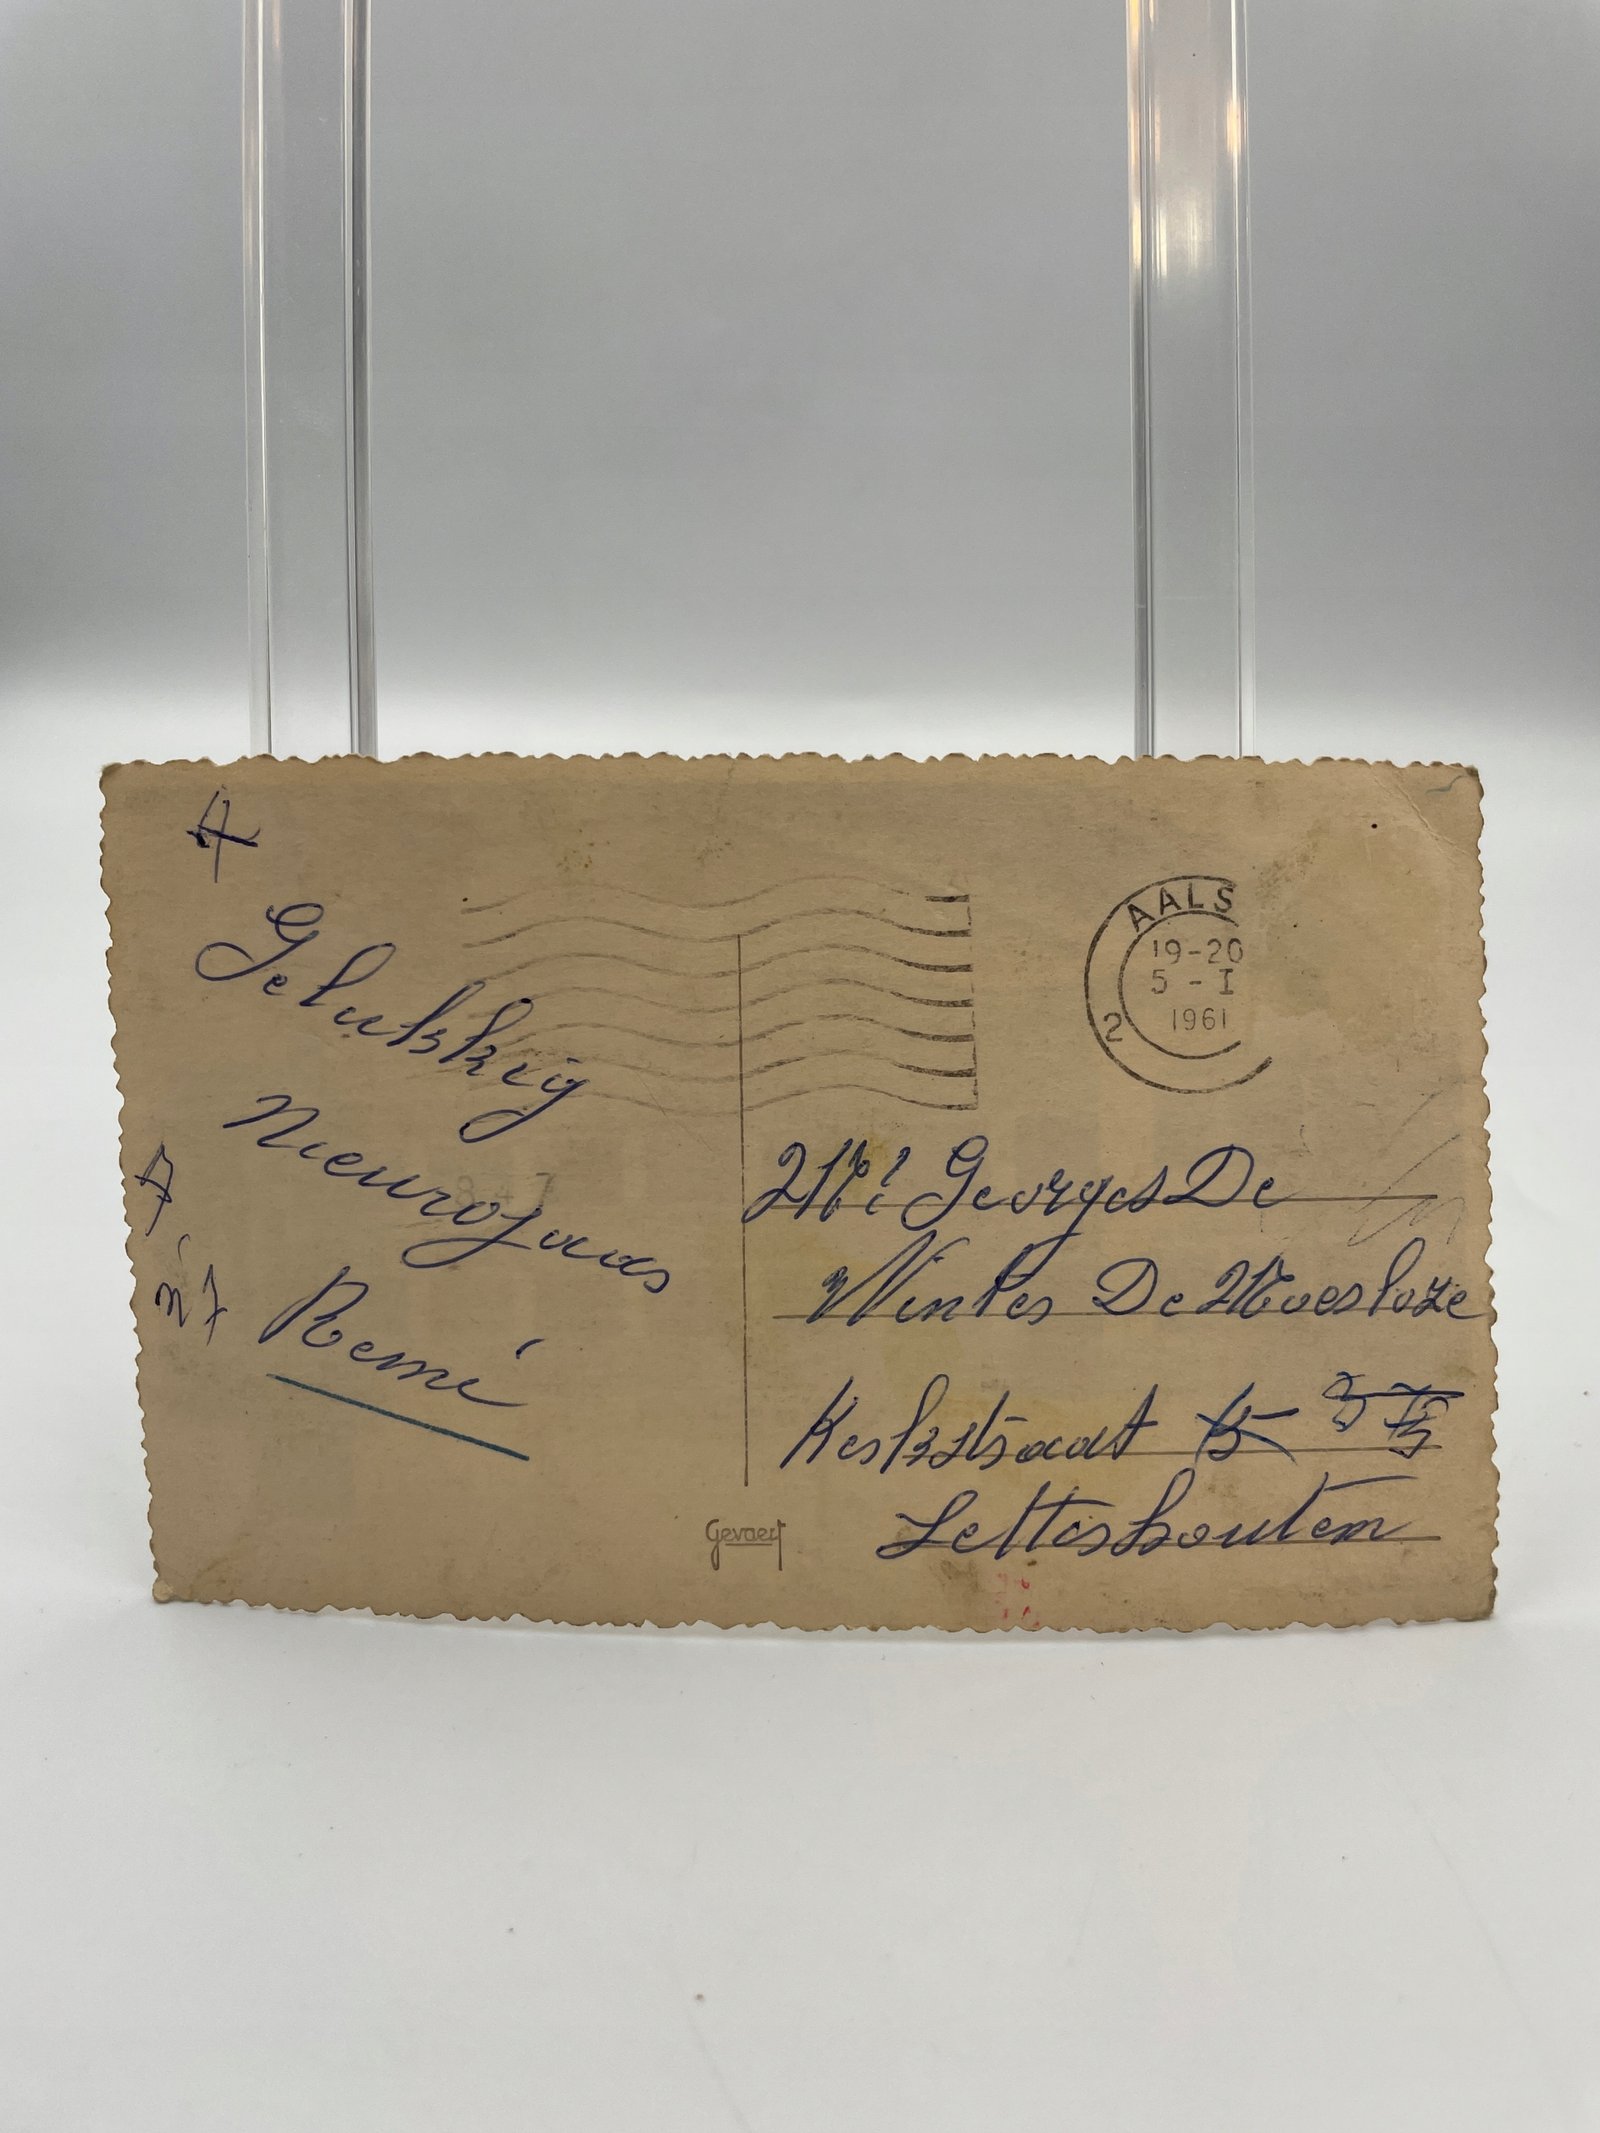 Gelukkig
Nieurojaas
Remi
AALS
19-20
5 - I
1961
2
Mr Georges De
Winter De Moerloze
Kerkstraat 15
Letterhoutem
Gevaert